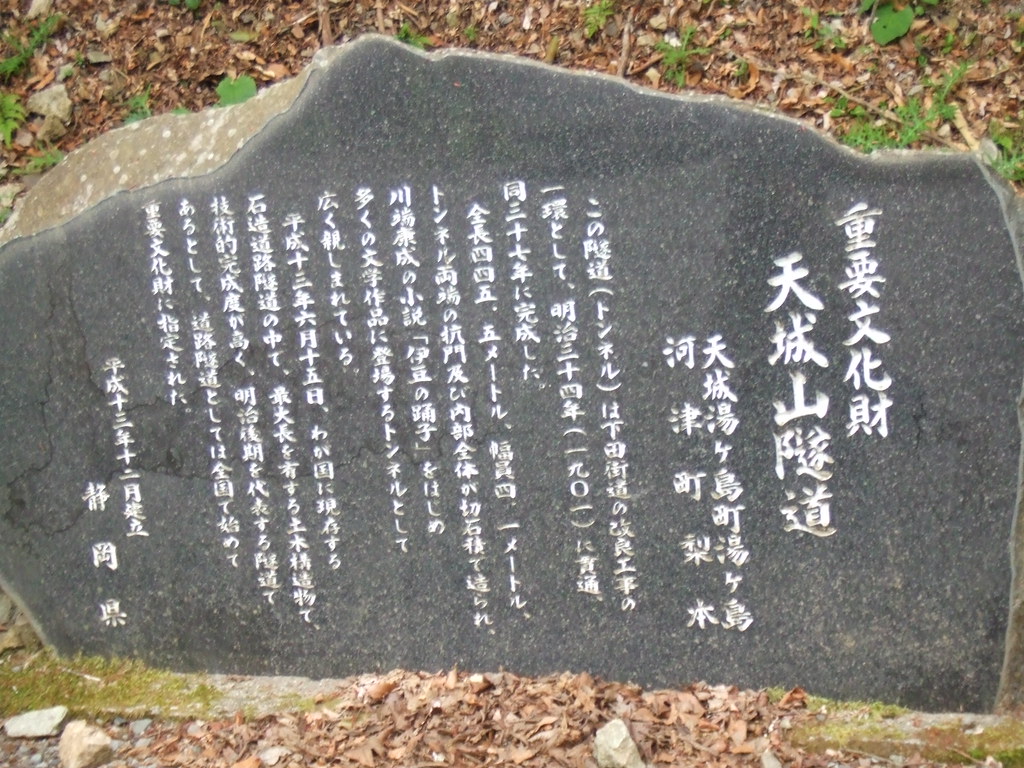 重要文化財
天城山隧道
天城湯ヶ島町湯ヶ島
河津町梨本
この隧道(トンネル)は下田街道の改良工事の
一環として、明治三十四年(一九〇一)に貫通、
同三十七年に完成した。
全長四四五．五メートル、幅員四．一メートル、
トンネル両端の坑門及び内部全体が切石積で造られ、
川端康成の小説「伊豆の踊子」をはじめ
多くの文学作品に登場するトンネルとして
広く親しまれている。
平成十三年六月十五日、わが国に現存する
石造道路隧道の中で、最大長を有する土木構造物で、
技術的完成度が高く、明治後期を代表する隧道で
あるとして、道路隧道としては全国で始めて
重要文化財に指定された。
平成十三年十二月建立
静岡県